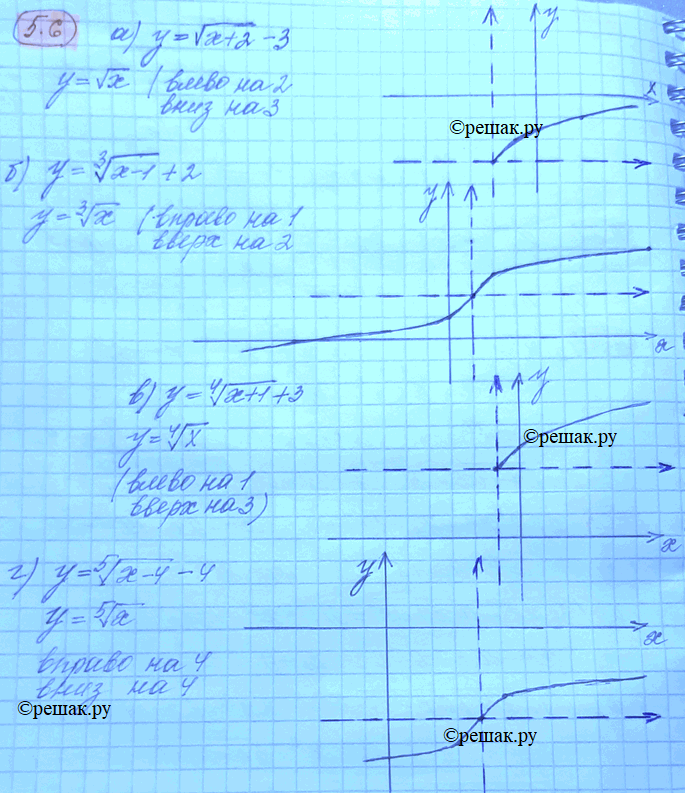 5.6
а) y = √(x+2) - 3
y = √x (влево на 2
вниз на 3
y
x
©решак.ру
б) y = ∛(x-1) + 2
y = ∛x (вправо на 1
вверх на 2
y
x
в) y = ∜(x+1) + 3
y = ∜x
(влево на 1
вверх на 3)
y
©решак.ру
x
г) y = ⁵√(x-4) - 4
y = ⁵√x
вправо на 4
вниз на 4
©решак.ру
y
x
©решак.ру